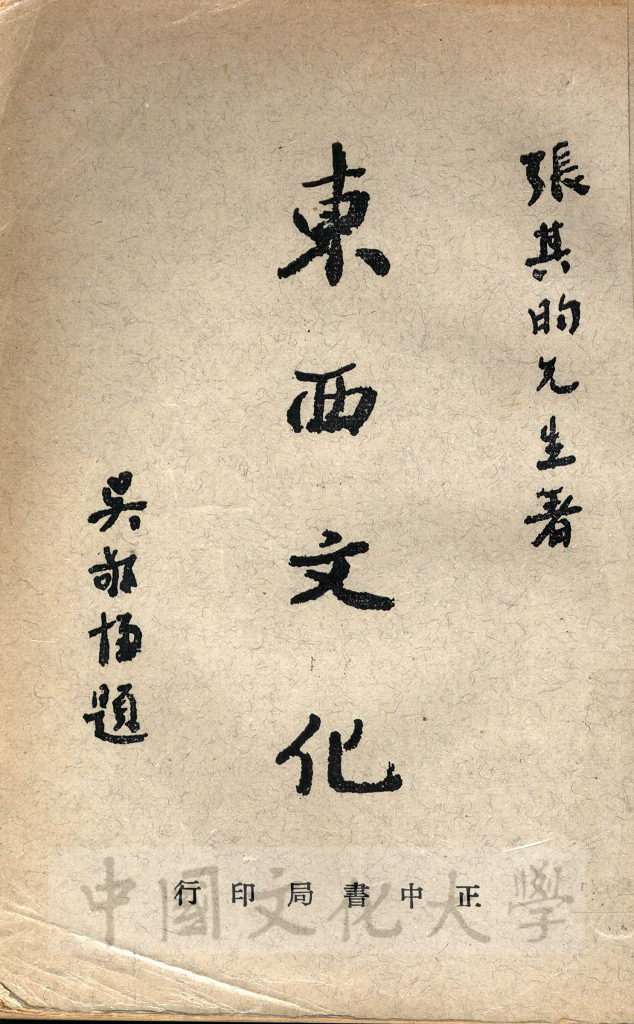 張其昀先生著
東西文化
吳敬恆題
正中書局印行
中國文化大學